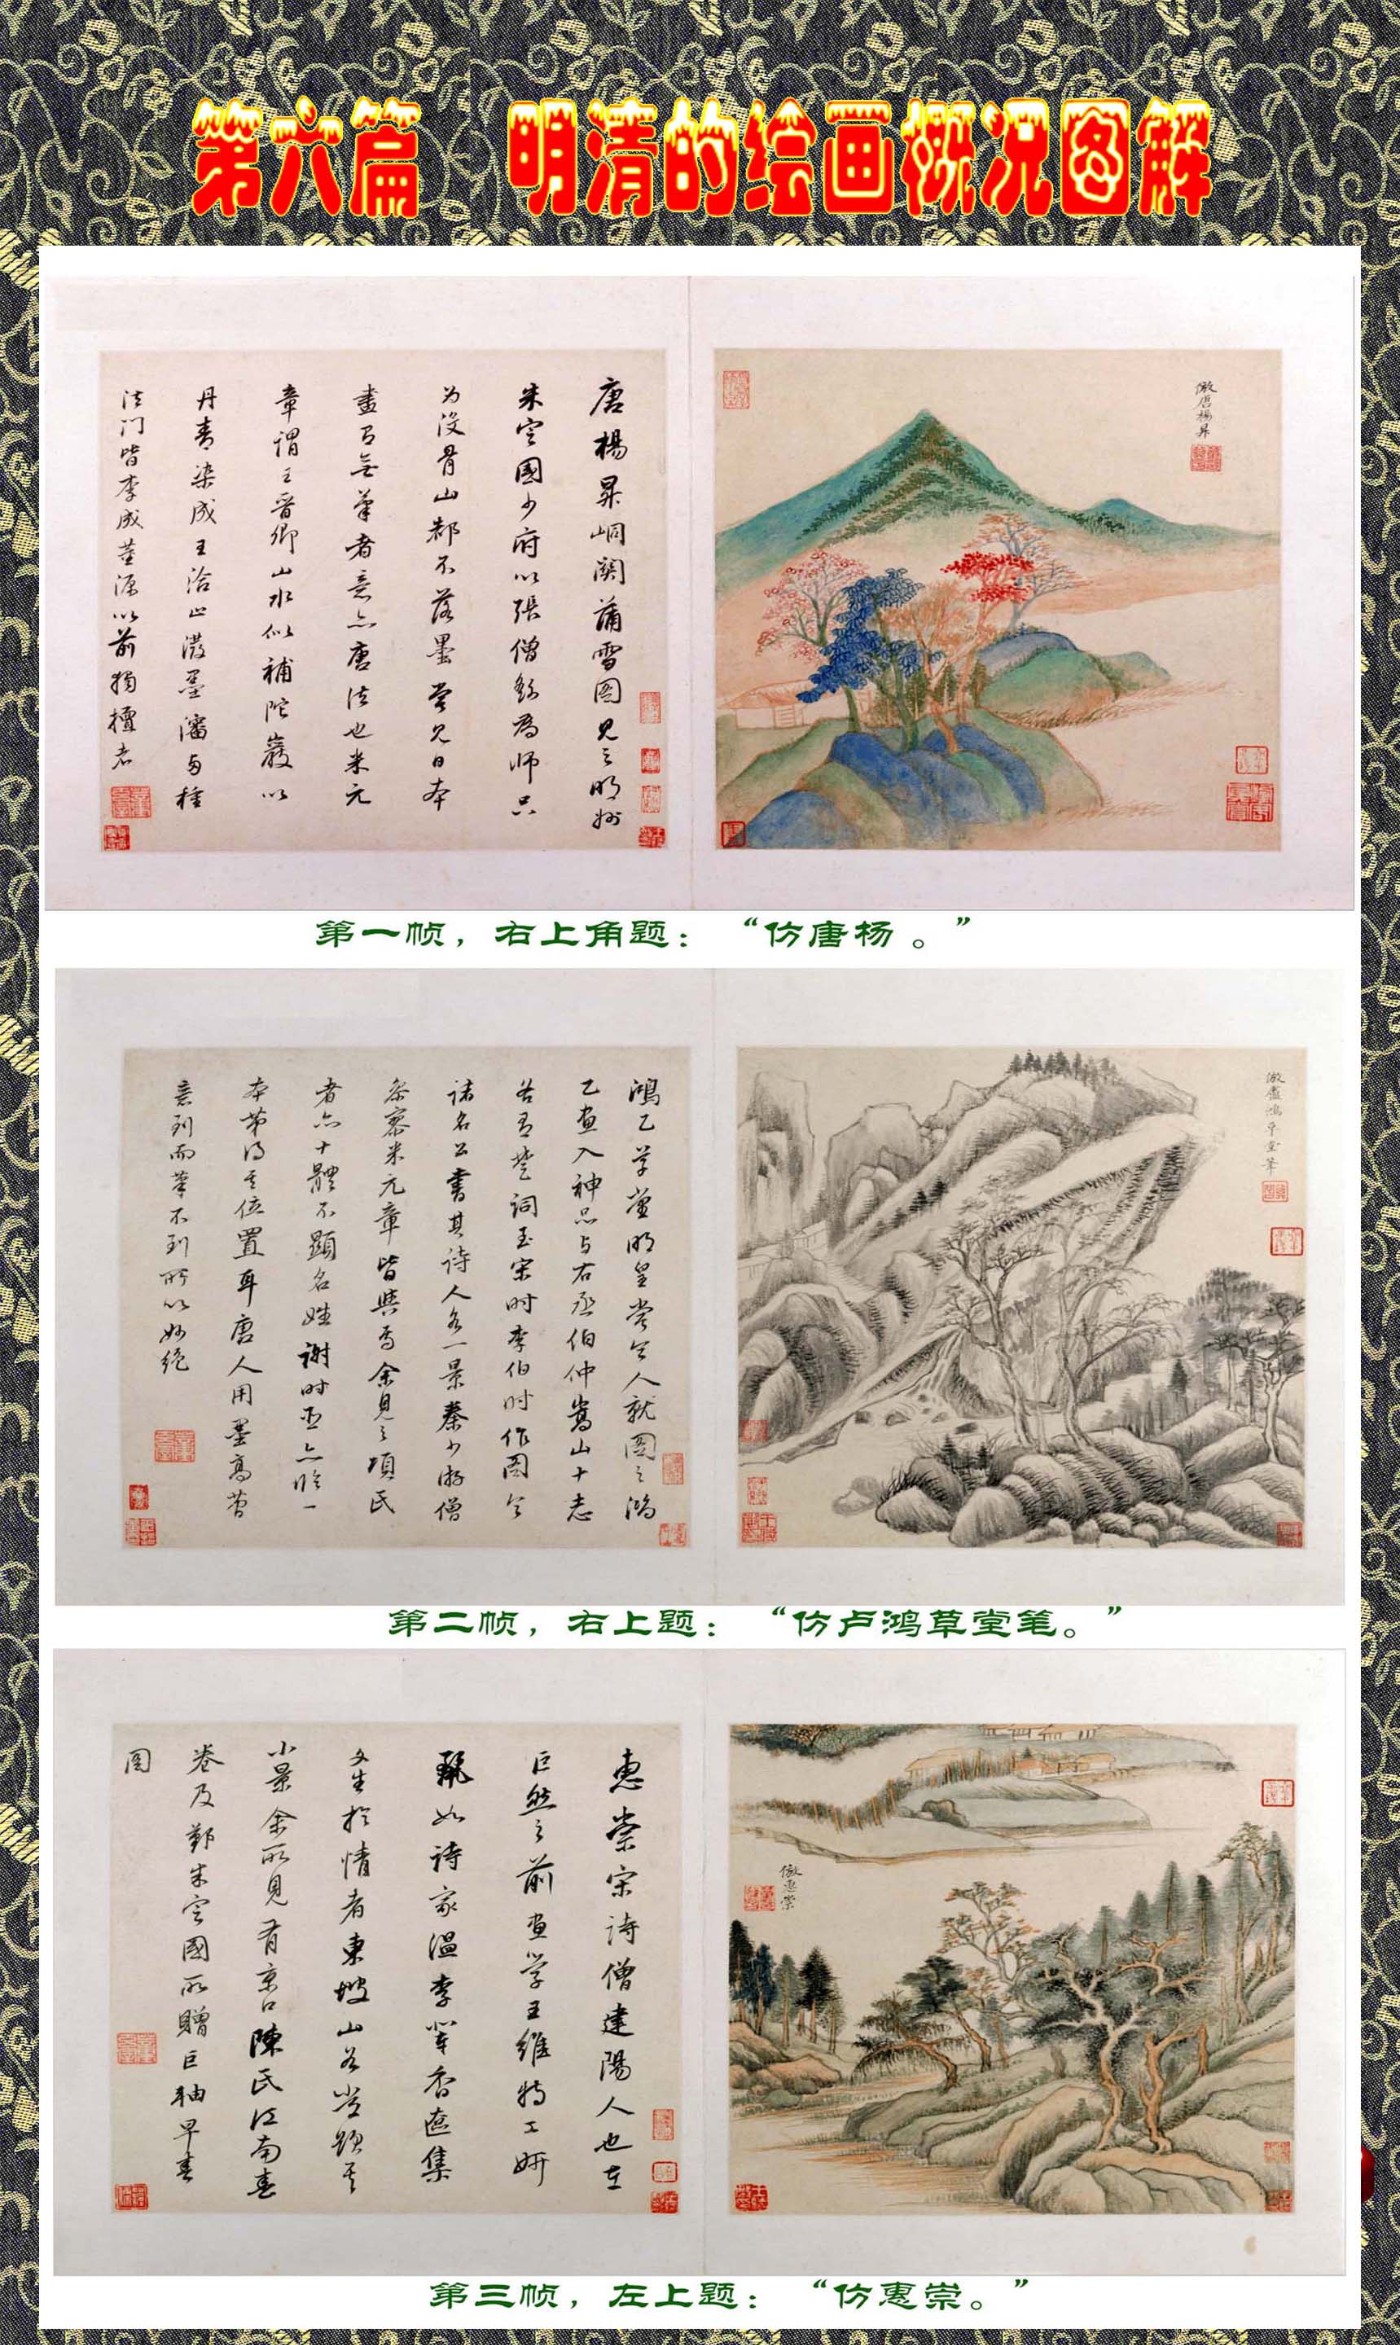 第六篇　明清的绘画概况图解
倣唐楊昇
唐楊昇峒關蒲雪图見之明州
朱定國少府以張僧繇為师只
为没骨山都不落墨嘗見日本
畫有無筆者意亦唐法也米元
章谓王晋卿山水似補陀巖以
丹青染成王洽止潑墨瀋与種
法门皆李成董源以前獨擅者
第一帧，右上角题：“仿唐杨 。”
倣盧鴻草堂筆
鴻乙草堂明皇嘗令人就图之鴻
乙画入神品与右丞伯仲嵩山十志
若有楚词至宋时李伯时作图令
諸名公書其诗人各一景秦少游僧
参寥米元章皆與焉余見之項氏
者亦十體不顯名姓謝时臣亦临一
本苐得其位置耳唐人用墨高苔
意到而筆不到所以妙绝
第二帧，右上题：“仿卢鸿草堂笔。”
倣惠崇
惠崇宋诗僧建陽人也在
巨然之前画学王維特工妍
甄如诗家温李輩香奩集
文生於情者東坡山谷嘗題其
小景余所見有京口陳氏江南春
卷及鄞朱定國所贈巨軸早春
图
第三帧，左上题：“仿惠崇。”